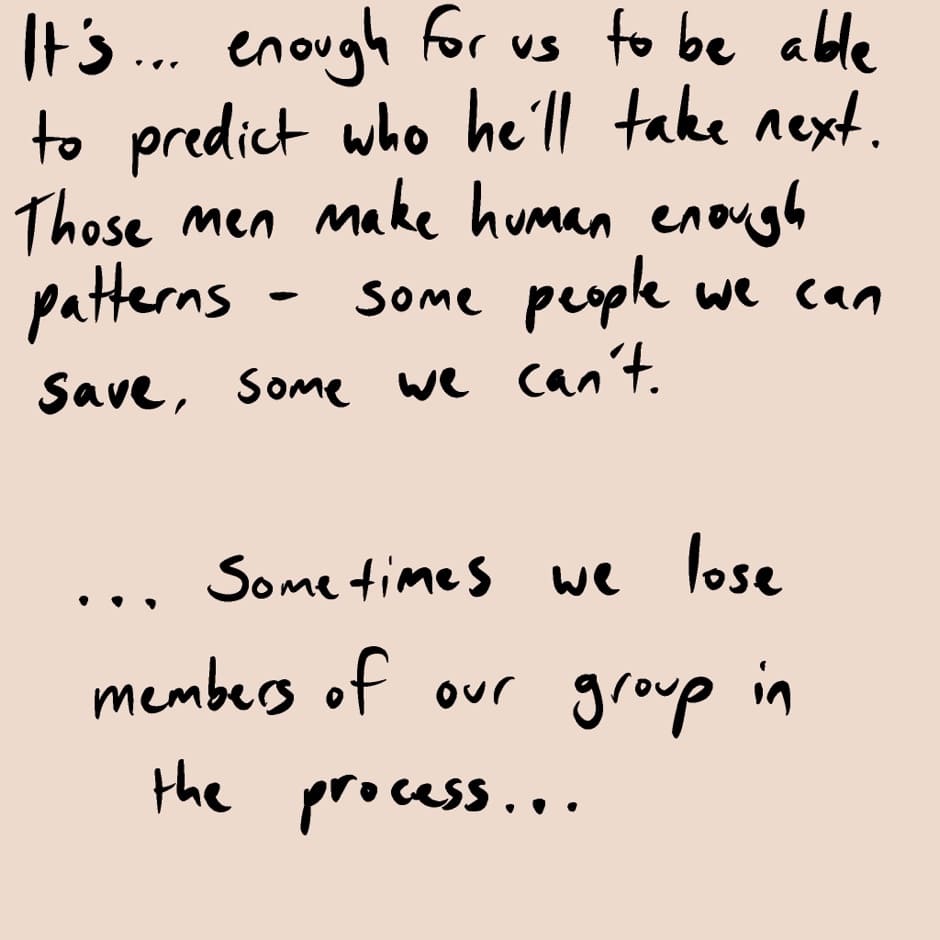 It's... enough for us to be able
to predict who he'll take next.
Those men make human enough
patterns - some people we can
save, some we can't.
... Sometimes we lose
members of our group in
the process...